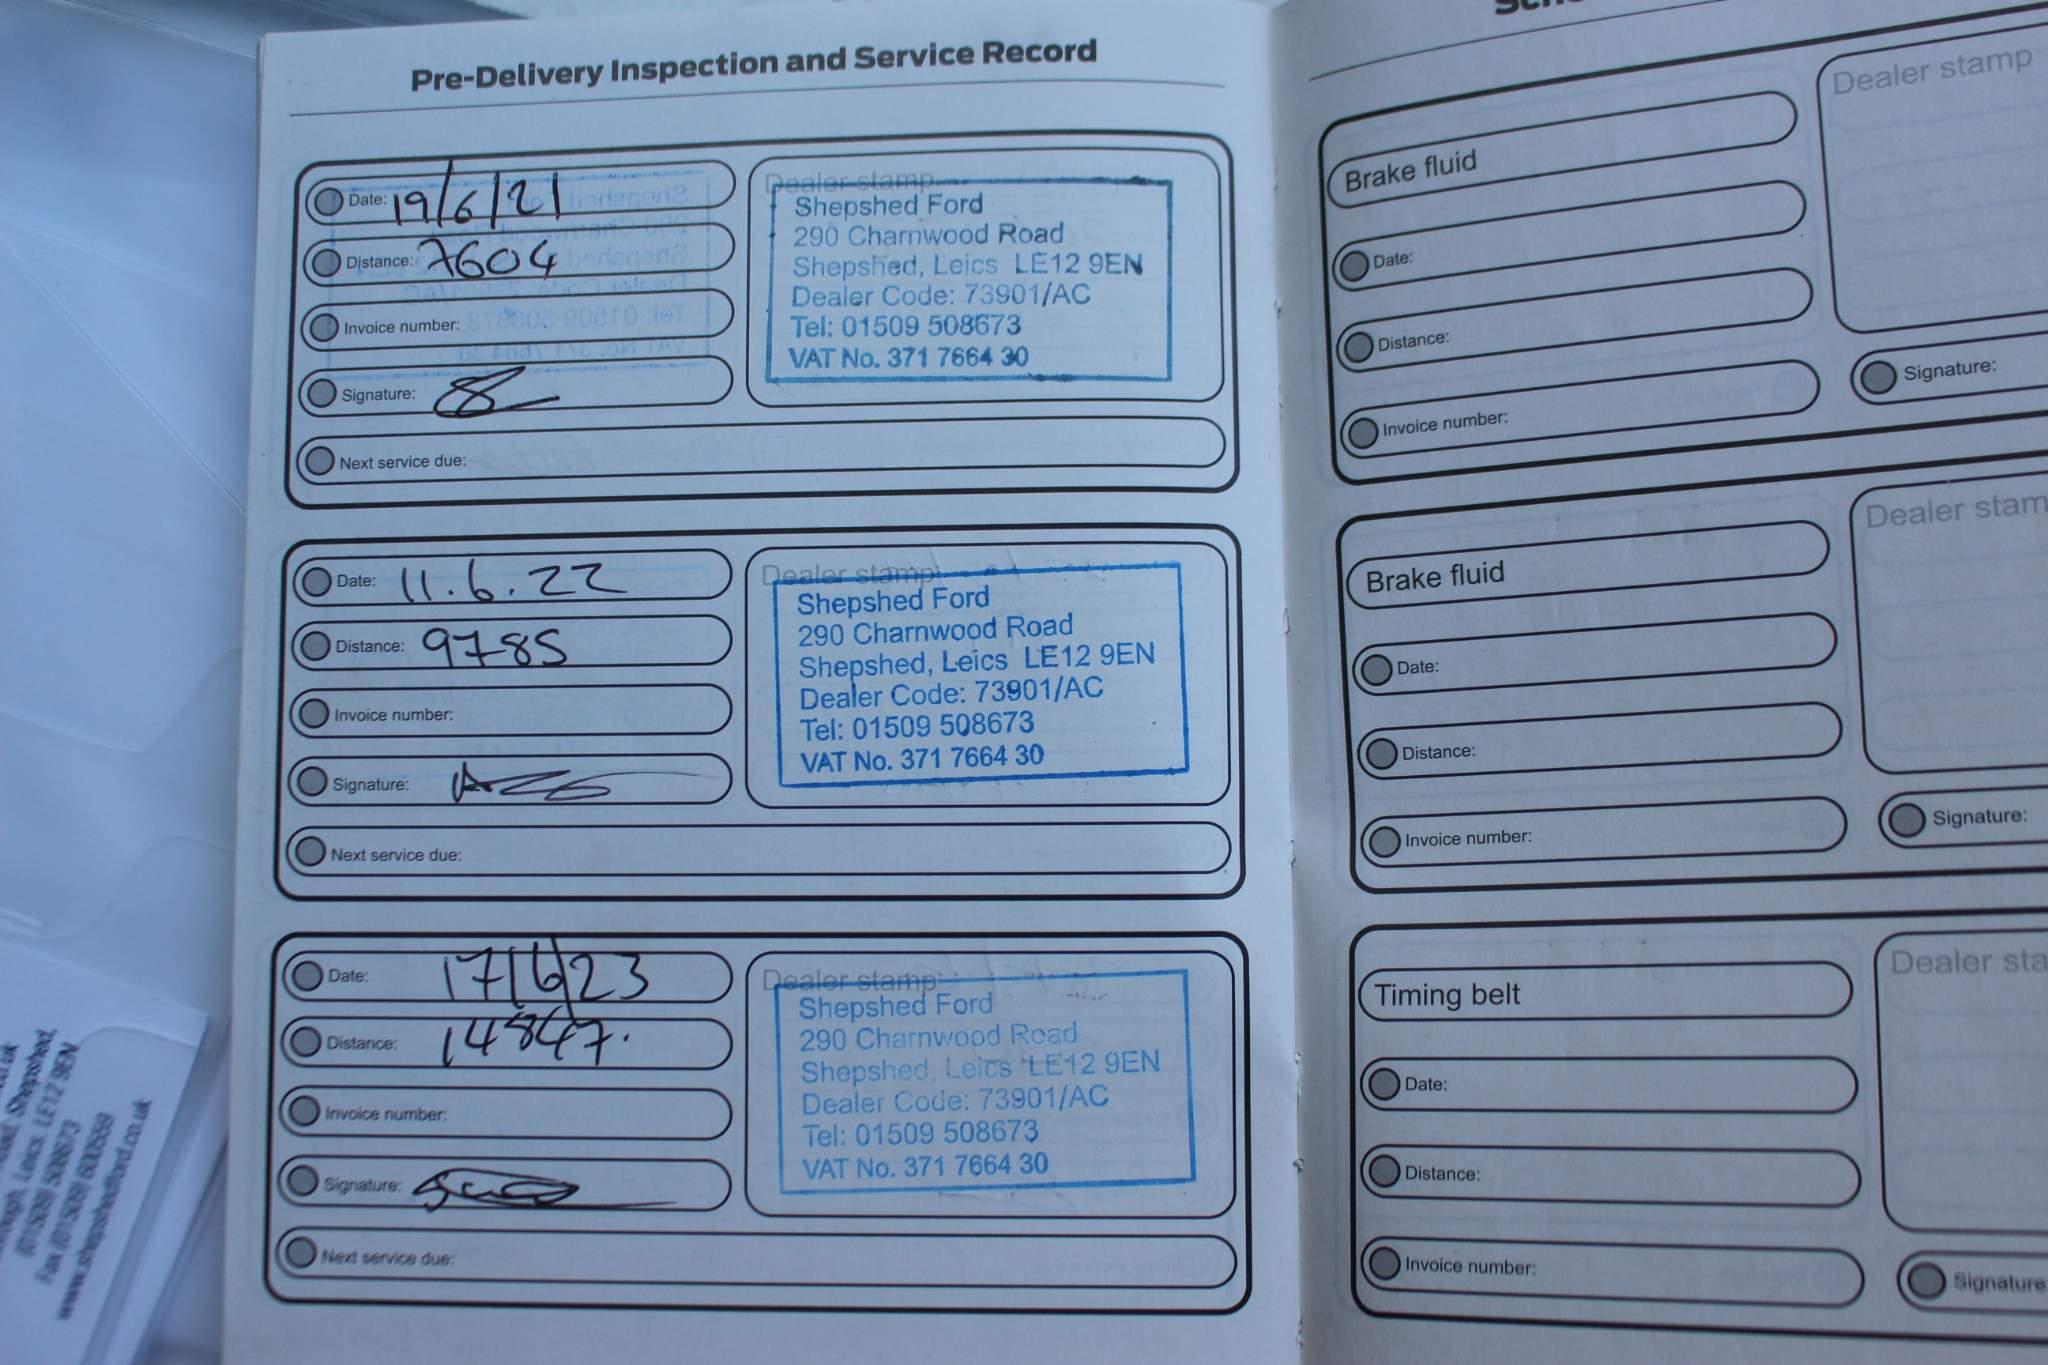 Pre-Delivery Inspection and Service Record
Date: 19/6/21
Distance: 7604
Invoice number:
Signature:
Next service due:
Dealer stamp
Shepshed Ford
290 Charnwood Road
Shepshed, Leics LE12 9EN
Dealer Code: 73901/AC
Tel: 01509 508673
VAT No. 371 7664 30
Date: 11.6.22
Distance: 9785
Invoice number:
Signature:
Next service due:
Dealer stamp
Shepshed Ford
290 Charnwood Road
Shepshed, Leics LE12 9EN
Dealer Code: 73901/AC
Tel: 01509 508673
VAT No. 371 7664 30
Date: 17/6/23
Distance: 14847.
Invoice number:
Signature:
Next service due:
Dealer stamp
Shepshed Ford
290 Charnwood Road
Shepshed, Leics LE12 9EN
Dealer Code: 73901/AC
Tel: 01509 508673
VAT No. 371 7664 30
Brake fluid
Date:
Distance:
Invoice number:
Dealer stamp
Signature:
Brake fluid
Date:
Distance:
Invoice number:
Dealer stam
Signature:
Timing belt
Date:
Distance:
Invoice number:
Dealer sta
Signature
Shepshed,
Leics. LE12 9EN
(01509) 508673
Fax (01509) 600559
www.shepshedford.co.uk